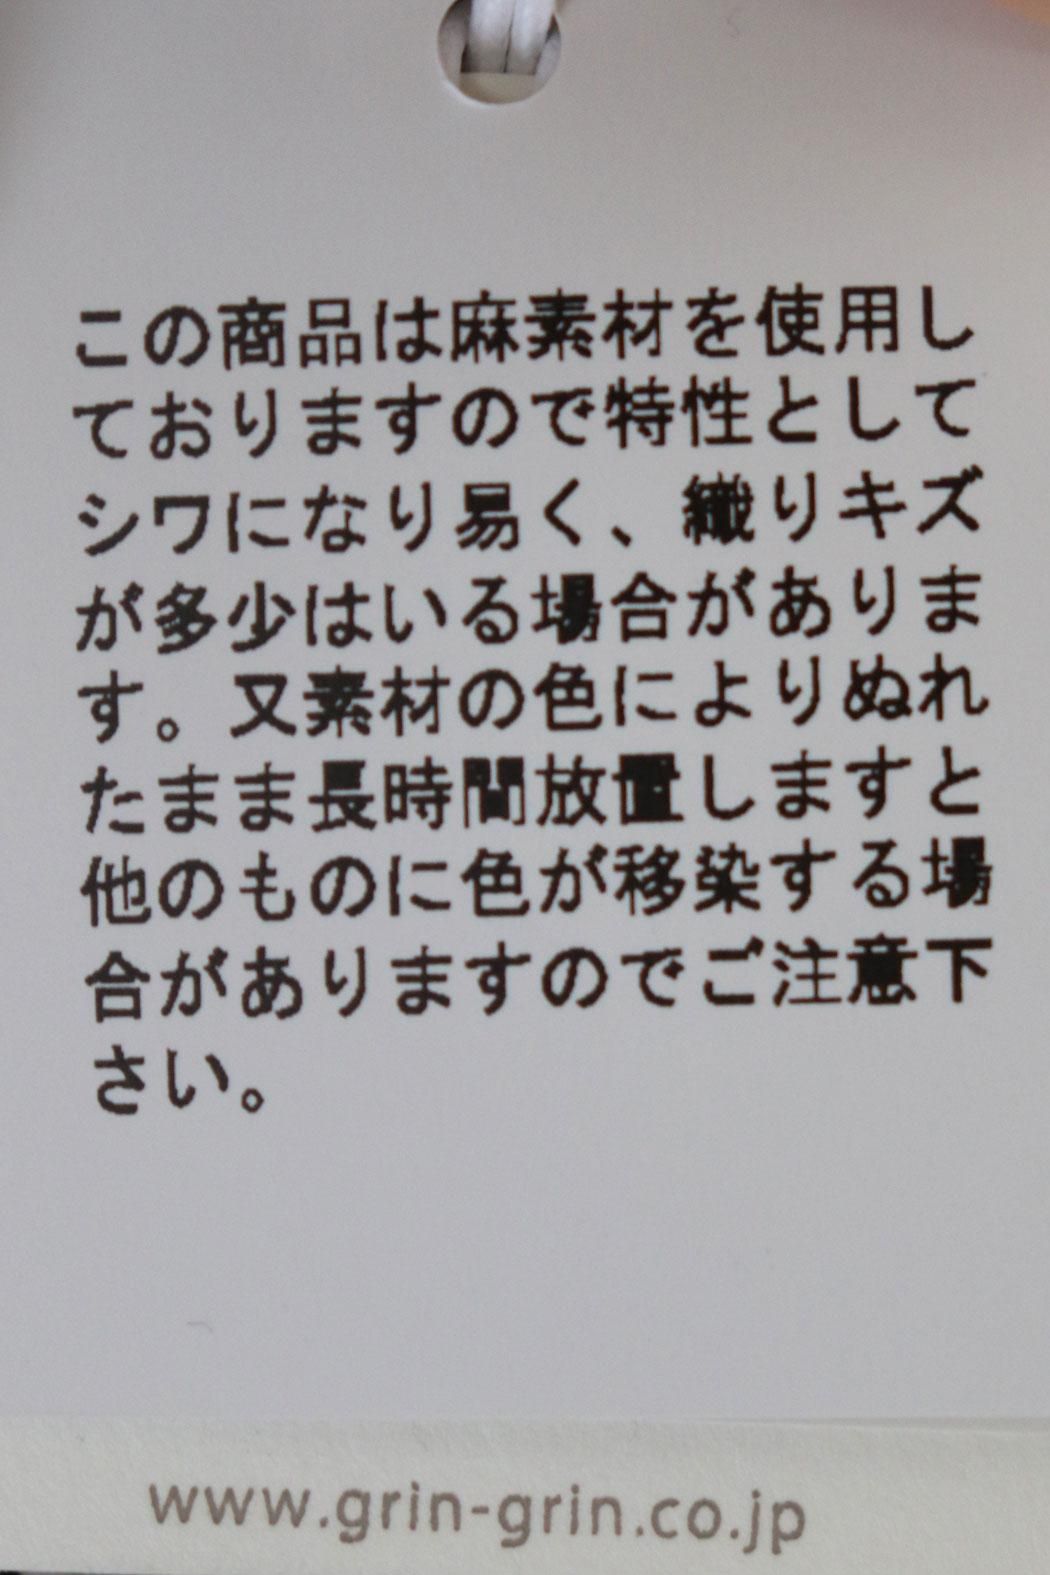 この商品は麻素材を使用し
ておりますので特性として
シワになり易く、織りキズ
が多少はいる場合がありま
す。又素材の色によりぬれ
たまま長時間放置しますと
他のものに色が移染する場
合がありますのでご注意下
さい。
www.grin-grin.co.jp